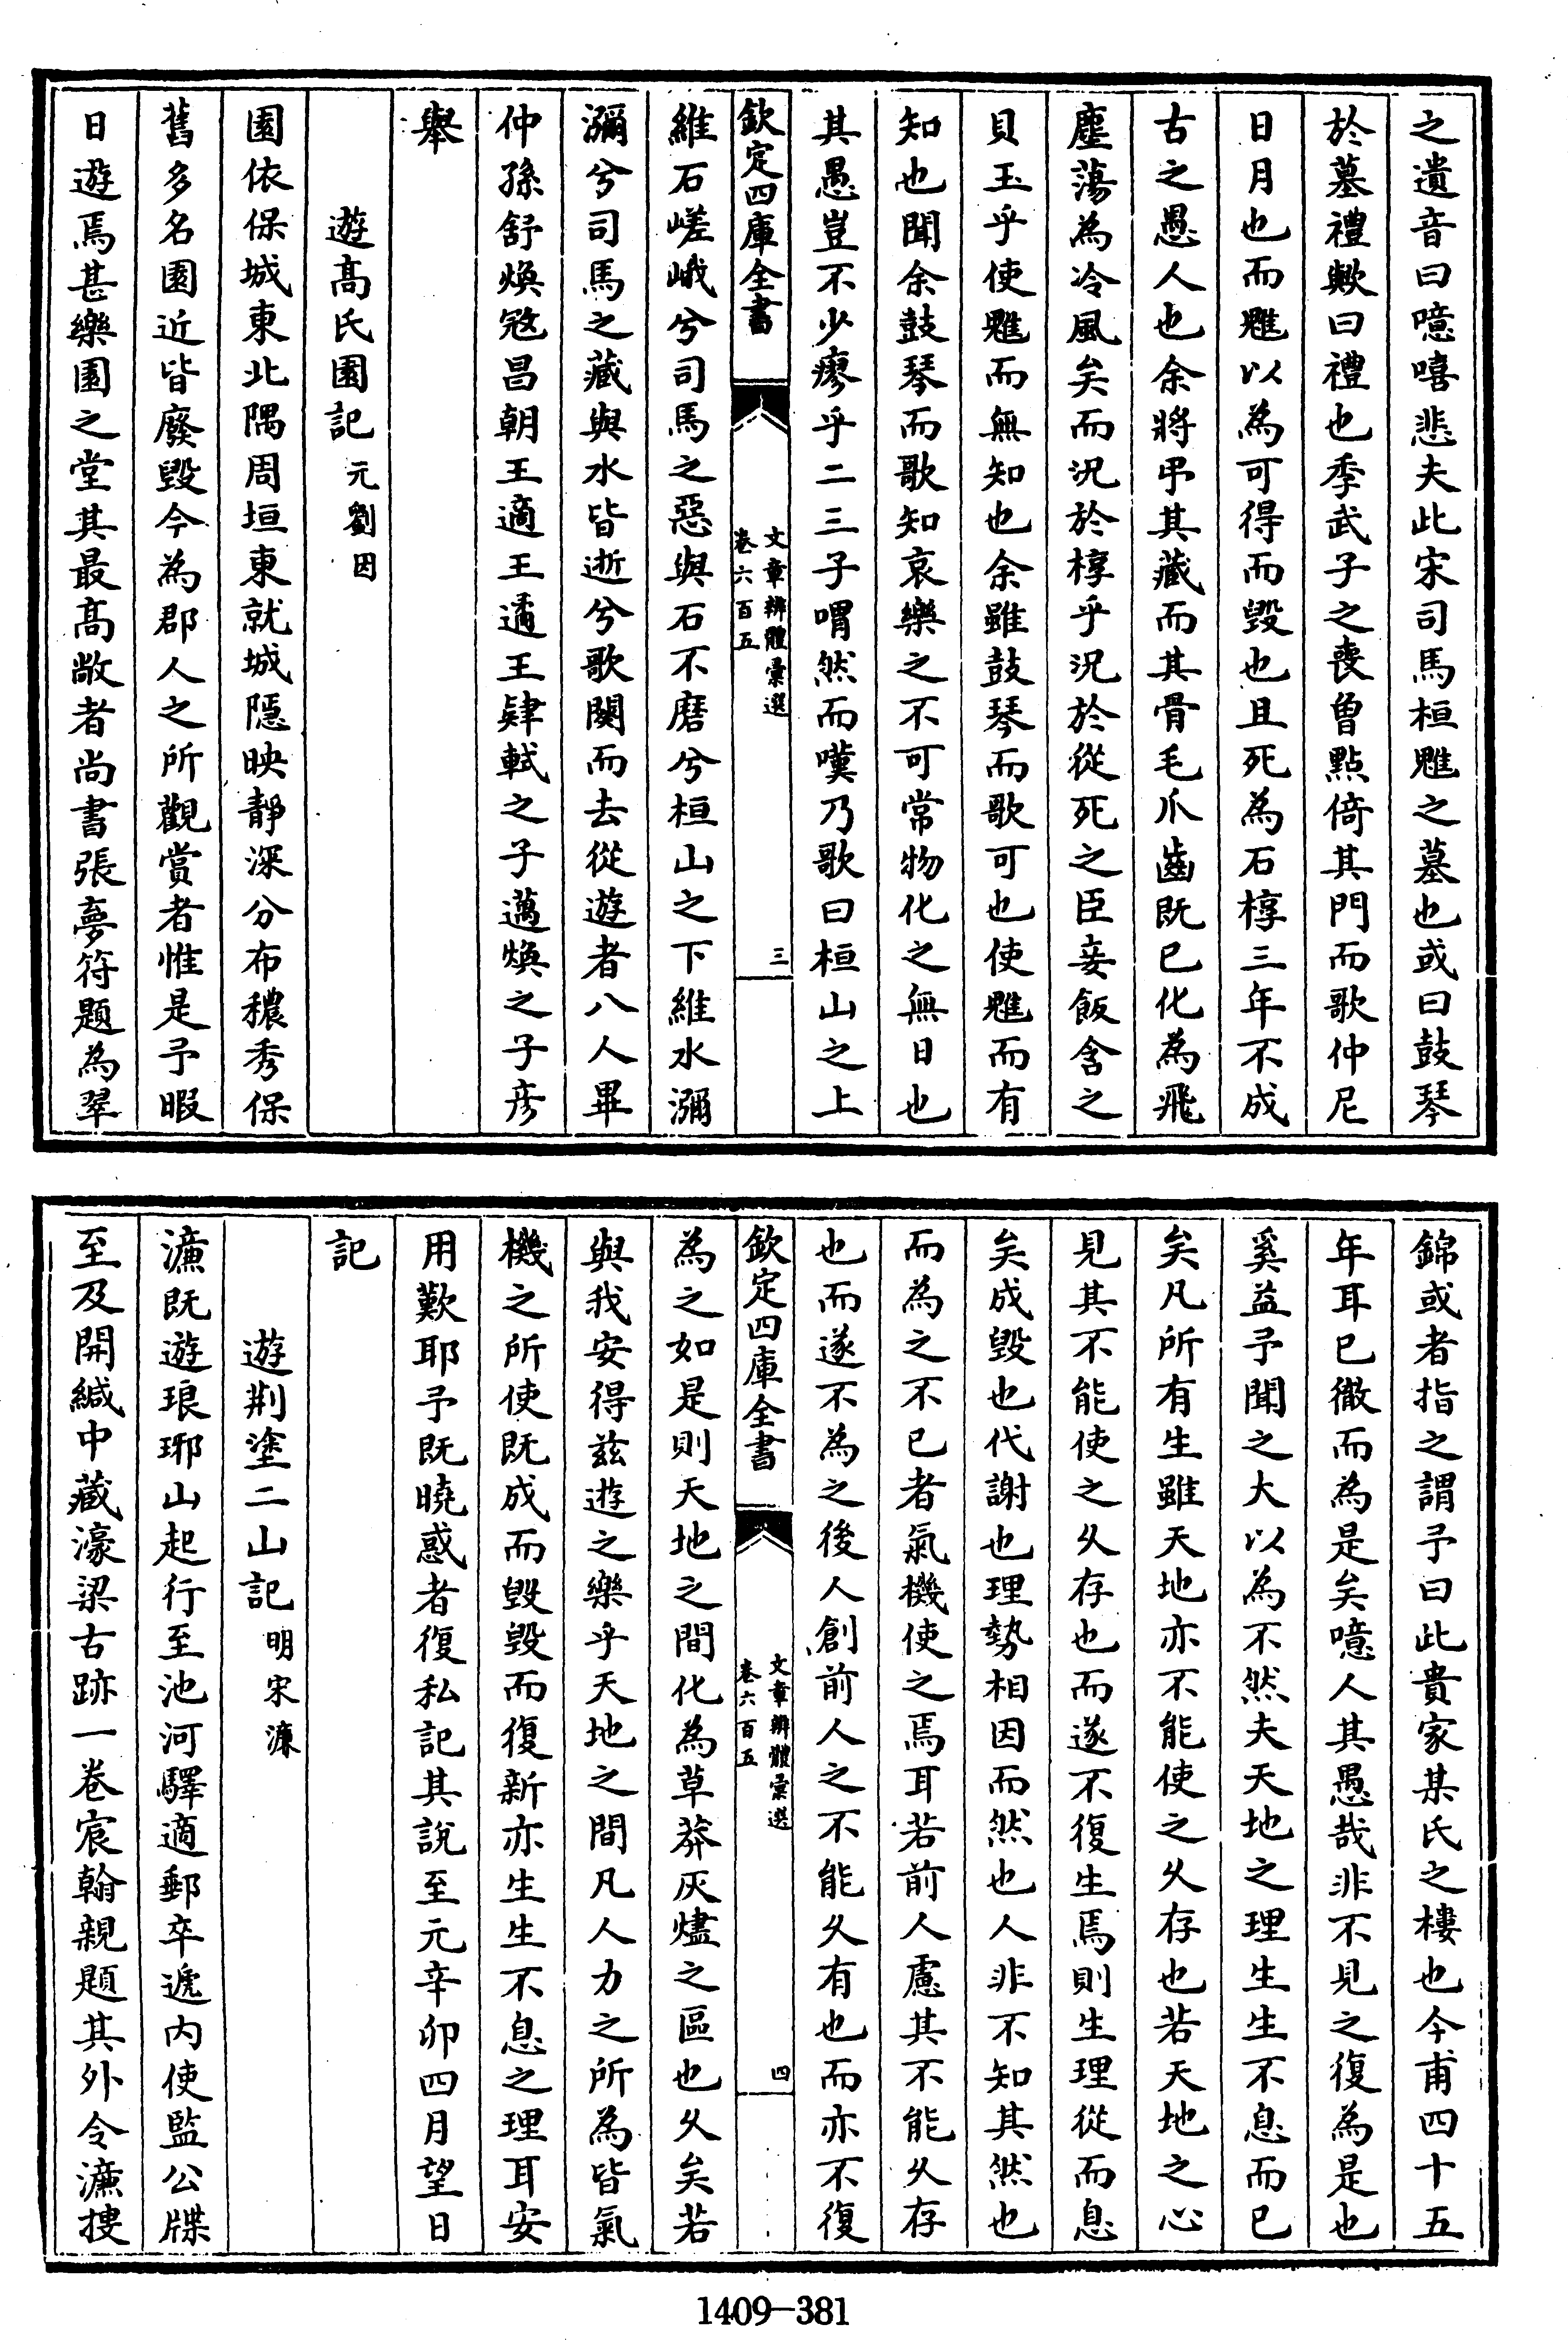 之遺音曰噫嘻悲夫此宋司馬桓魋之墓也或曰鼓琴
於墓禮歟曰禮也季武子之喪曾點倚其門而歌仲尼
日月也而魋以為可得而毀也且死為石椁三年不成
古之愚人也余將弔其藏而其骨毛爪齒既已化為飛
塵蕩為冷風矣而況於椁乎況於從死之臣妾飯含之
貝玉乎使魋而無知也余雖鼓琴而歌可也使魋而有
知也聞余鼓琴而歌知哀樂之不可常物化之無日也
其愚豈不少瘳乎二三子喟然而嘆乃歌曰桓山之上
欽定四庫全書
文章辨體彚選
卷六百五
三
維石嵯峨兮司馬之惡與石不磨兮桓山之下維水瀰
瀰兮司馬之藏與水皆逝兮歌闋而去從遊者八人畢
仲孫舒煥冦昌朝王適王遹王肄軾之子邁煥之子彦
舉
遊髙氏園記元劉因
園依保城東北隅周垣東就城隱映静深分布穠秀保
舊多名園近皆廢毀今為郡人之所觀賞者惟是予暇
日遊焉甚樂園之堂其最髙敞者尚書張夢符題為翠
錦或者指之謂予曰此貴家某氏之樓也今甫四十五
年耳已徹而為是矣噫人其愚哉非不見之復為是也
奚益予聞之大以為不然夫天地之理生生不息而已
矣凡所有生雖天地亦不能使之乆存也若天地之心
見其不能使之乆存也而遂不復生焉則生理從而息
矣成毀也代謝也理勢相因而然也人非不知其然也
而為之不已者氣機使之焉耳若前人慮其不能乆存
也而遂不為之後人創前人之不能乆有也而亦不復
欽定四庫全書
文章辨體彚選
卷六百五
四
為之如是則天地之間化為草莽灰燼之區也乆矣若
與我安得兹遊之樂乎天地之間凡人力之所為皆氣
機之所使既成而毀毀而復新亦生生不息之理耳安
用歎耶予既曉惑者復私記其說至元辛卯四月望日
記
遊荆塗二山記明宋濂
濂既遊琅琊山起行至池河驛適郵卒遞内使監公牒
至及開緘中藏濠梁古跡一卷宸翰親題其外令濂摟
1409—381